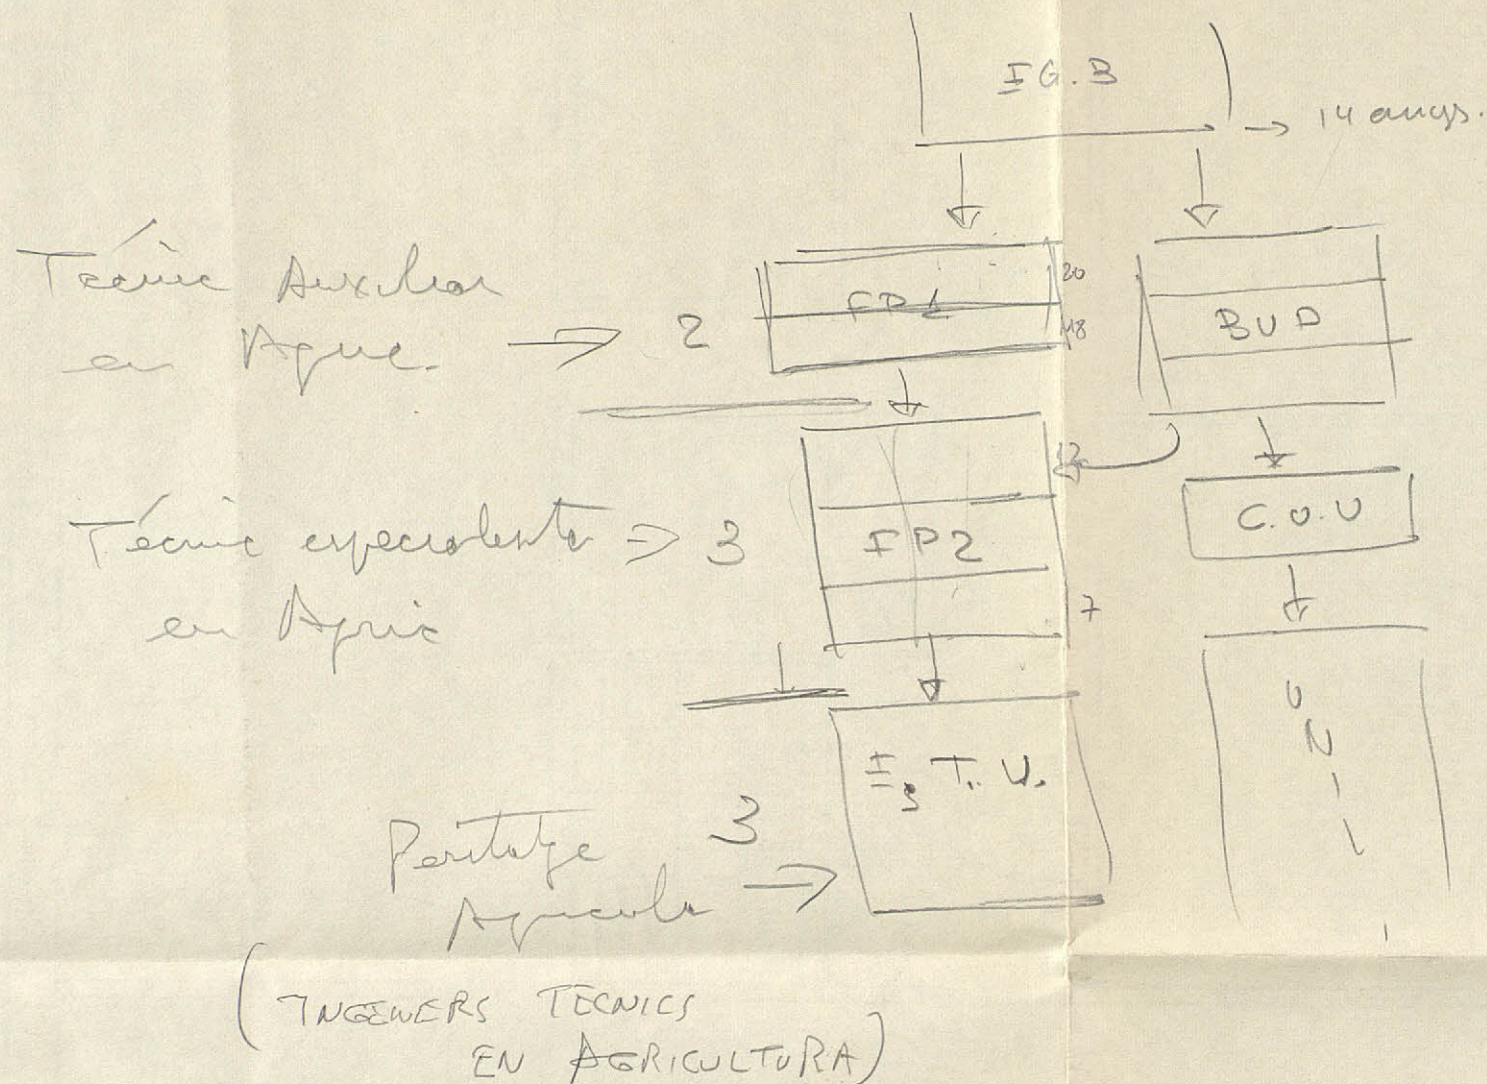 E G. B
→ 14 anys.
Tècnic Auxiliar
en Agric.
→ 2
FP1
20
18
BUP
Tècnic especialista → 3
en Agric
FP2
12
7
C.O.U
E. T. U.
U
N
I
Peritatge 3
Agricola →
(INGENIERS TÈCNICS
EN AGRICULTURA)